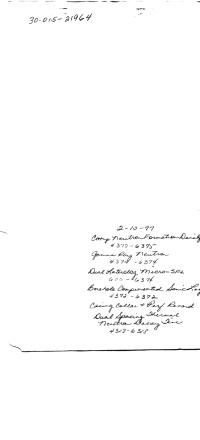 30-015-21964
2-10-77
Comp Neutron Formation Density
4370-6375
Gamma Ray Neutron
4374-6374
Dual Laterolog Micro-SFL
600-6374
Borehole Compensated Sonic Log
4372-6372
Casing Collar & Perf Record
Dual Spacing Thermal
Neutron Decay Time